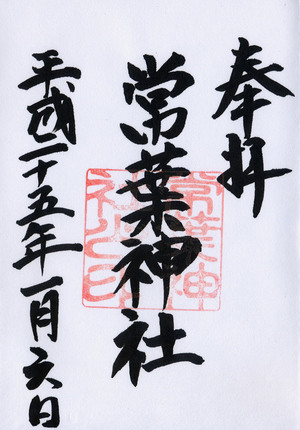 奉拝
常葉神社
平成二十五年一月六日
常葉神社之印